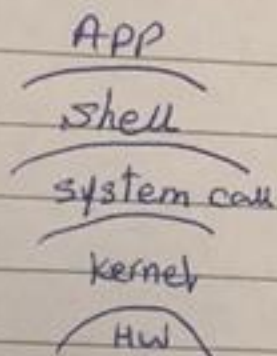 App
shell
system call
kernel
HW